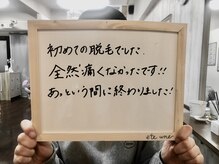 初めての脱毛でした
全然痛くなかったです!!
あっという間に終わりました!